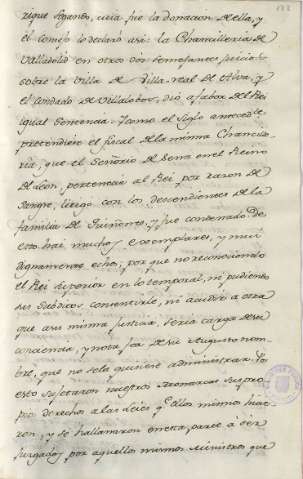 rique Siganos, ucia fue la donacion de ella, y
el consejo lo declaró asi: la Chancilleria de
Valladolid en otros dos semejantes juicios
sobre la Villa de Villa-real de Alva, y
el condado de Villalobos, dió a fabor del Rei
igual Sentencia: Tambien el siglo antecedente
pretendiendo el fiscal de la misma Chancille
ria, que el Señorio de Sena en el Reino
de Leon, pertenecia al Rei por razon de
Sangre, litigó con los descendientes de la
familia de Quiñones, y fue condenado. De
esto hai muchos exemplares, y mui
dignamente echo, porque no reconociendo
el Rei superior en lo temporal, ni pudiendo
sus subditos convenirle, ni acudir a otra
que a su misma justicia, seria carga de su
conciencia, y nota fea de su Augusto nom-
bre, que no se la quisiese administrar. Por
esto sujetaron nuestros Monarcas su pro
pio derecho a las leies q.e ellos mismos hicie
ron, y se hallaron en esta parte a ser
juzgados por aquellos mismos Ministros que